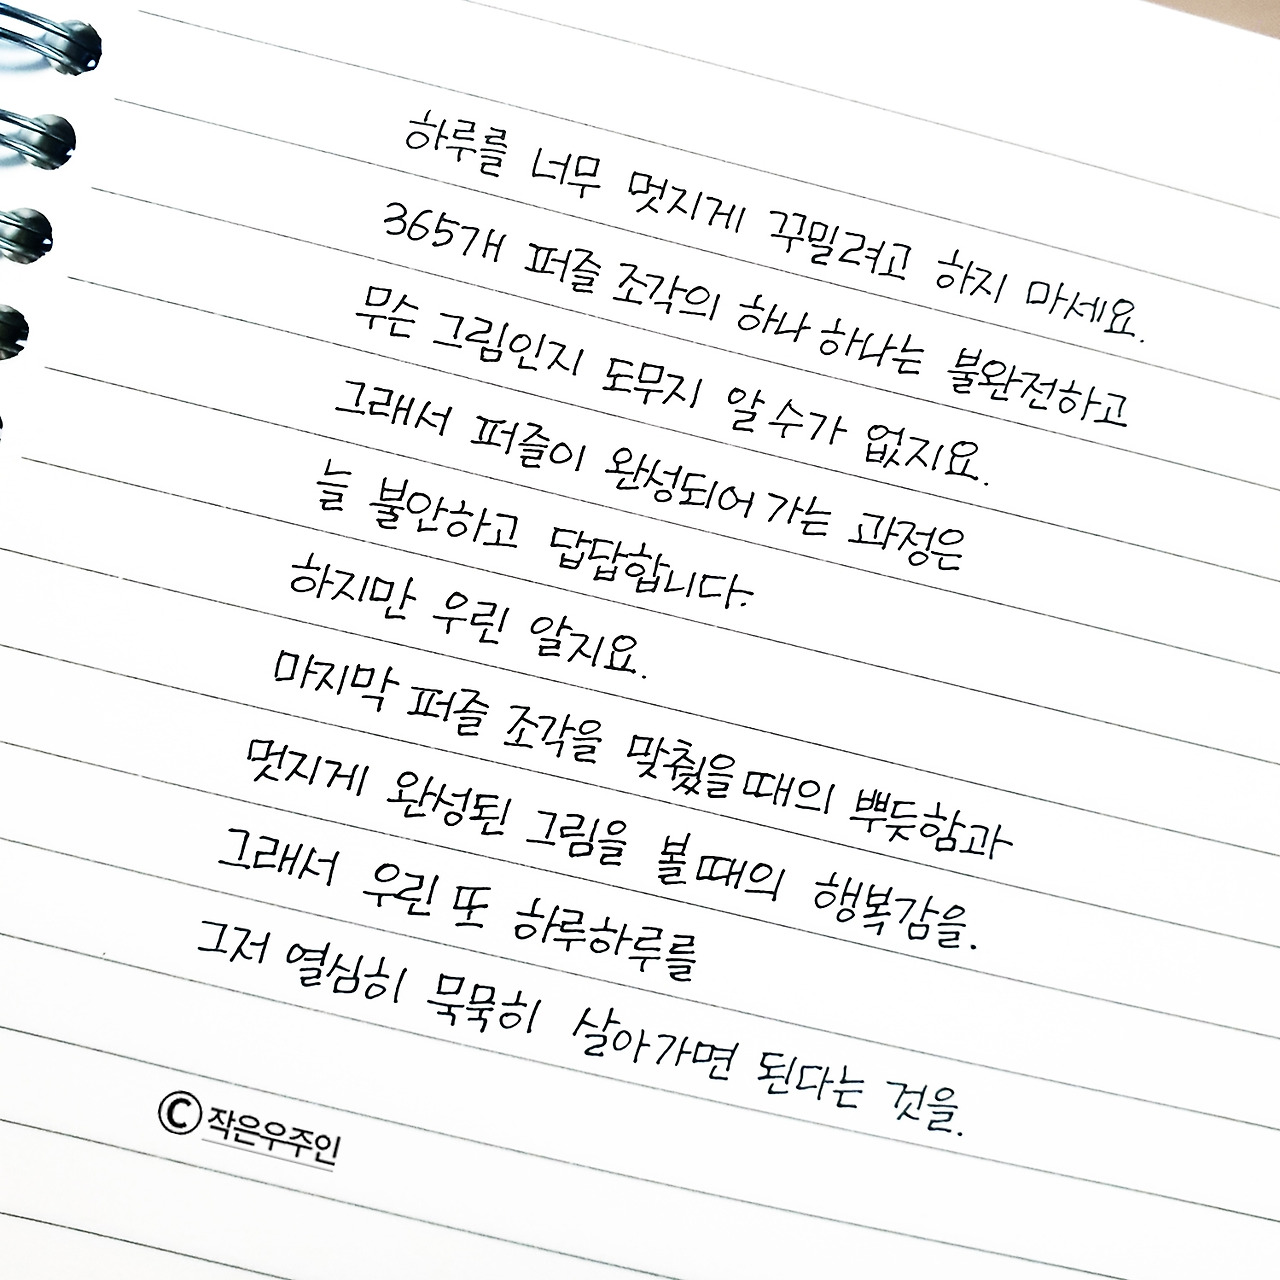 하루를 너무 멋지게 꾸밀려고 하지 마세요.
365개 퍼즐 조각의 하나 하나는 불완전하고
무슨 그림인지 도무지 알 수가 없지요.
그래서 퍼즐이 완성되어 가는 과정은
늘 불안하고 답답합니다.
하지만 우린 알지요.
마지막 퍼즐 조각을 맞췄을 때의 뿌듯함과
멋지게 완성된 그림을 볼 때의 행복감을.
그래서 우린 또 하루하루를
그저 열심히 묵묵히 살아가면 된다는 것을.
ⓒ 작은우주인